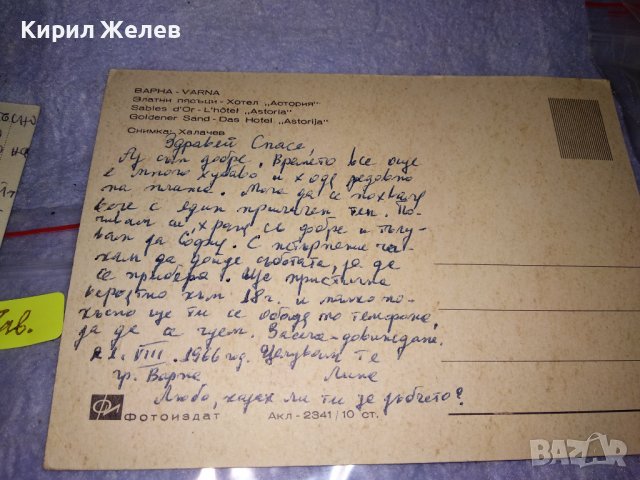 Кирил Желев
ВАРНА - VARNA
Златни пясъци - Хотел „Астория"
Sables d'Or - L'hôtel „Astoria"
Goldener Sand - Das Hotel „Astorija"
Снимка: Халачев
Здравей Спасе,
Аз съм добре. Времето все още
е много хубаво и ходя редовно
на плажа. Мога да се похваля
вече с един приличен тен. По-
чивам си, храня се добре и плу-
вам до София. С нетърпение ча-
кам да дойде съботата, за да
се прибера. Ще пристигна
вероятно към 18 ч. и малко по-
късно ще ти се обадя по телефона,
за да се чуем. Засега - довиждане.
21. VIII. 1966 год. Целувам те
гр. Варна Лили
Любо, казах ли ти за дъбчето?
ФИ ФОТОИЗДАТ Акл - 2341/10 ст.
лв.
BAZAR
bg